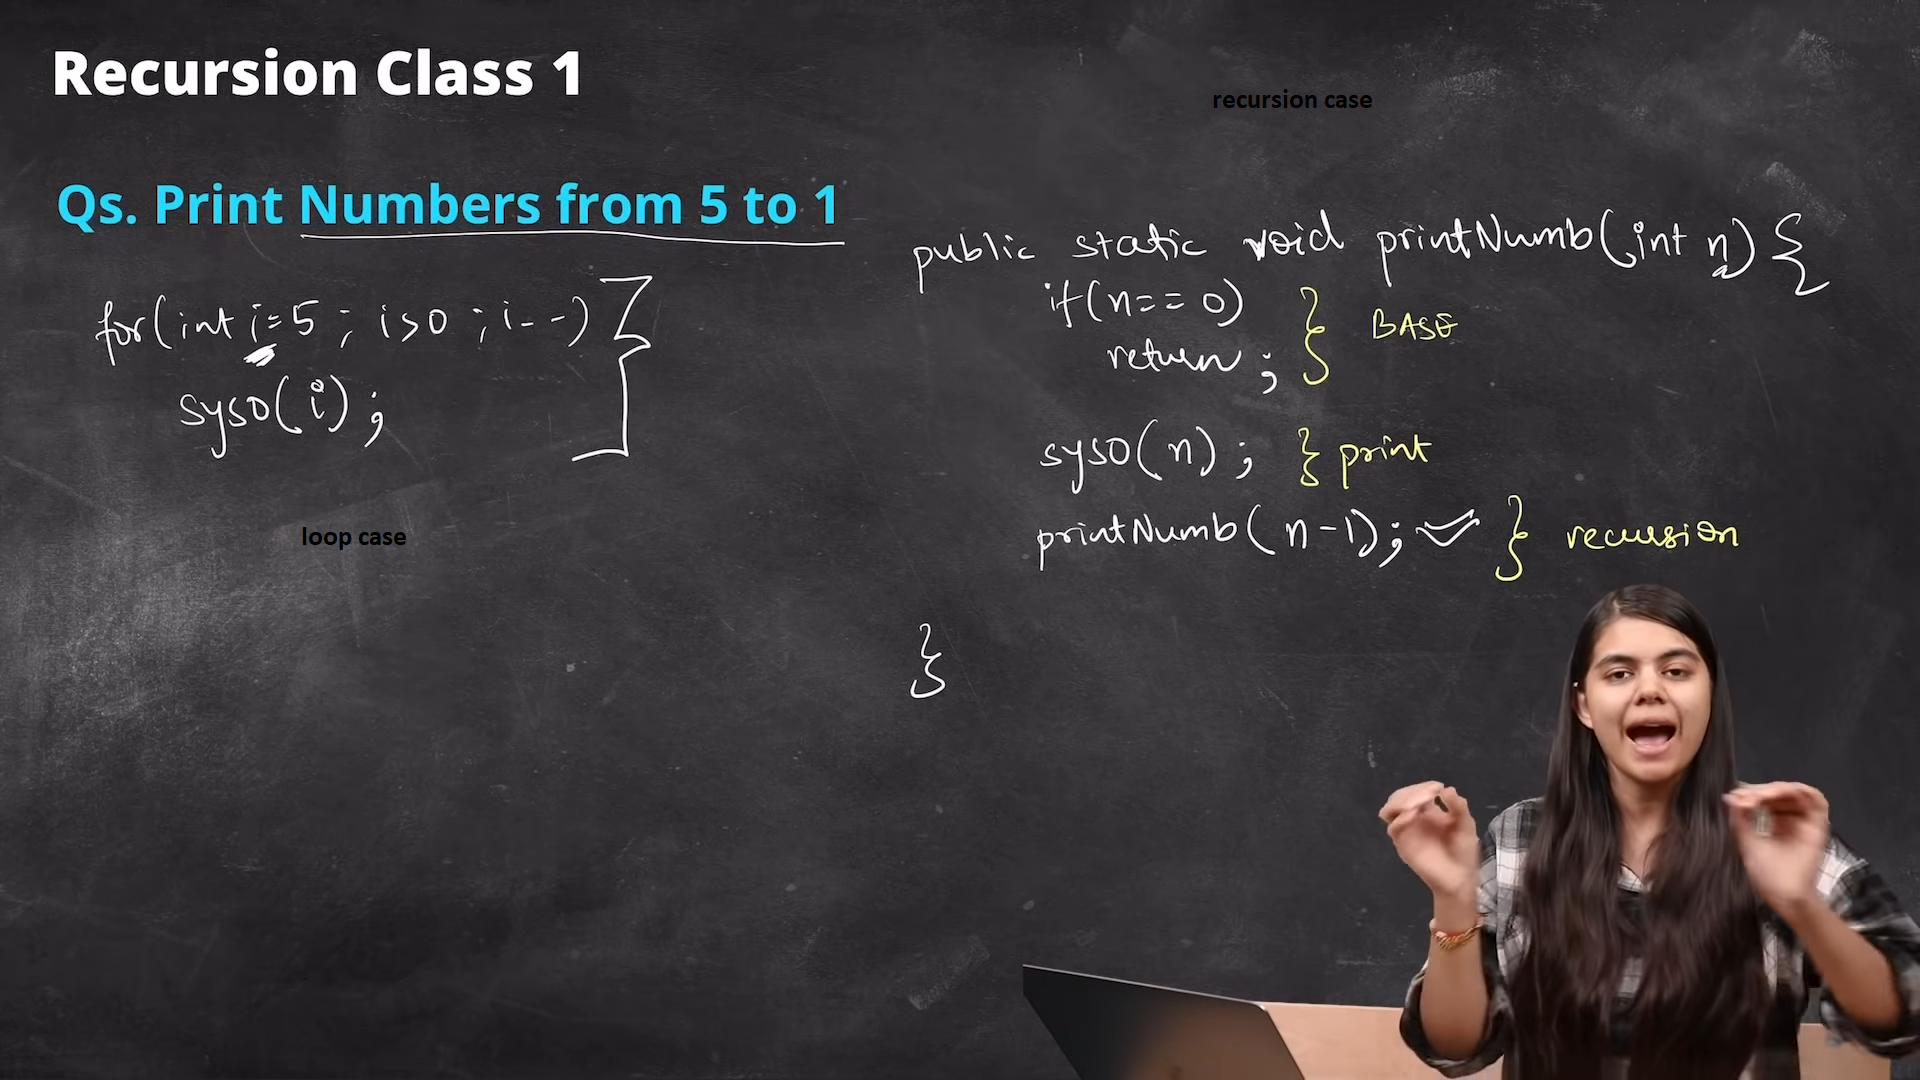 Recursion Class 1
Qs. Print Numbers from 5 to 1
for(int i=5 ; i>0 ; i--)
syso(i);
loop case
recursion case
public static void printNumb(int n) {
if(n==0) } BASE
return ;
syso(n) ; } print
printNumb(n-1); } recursion
}